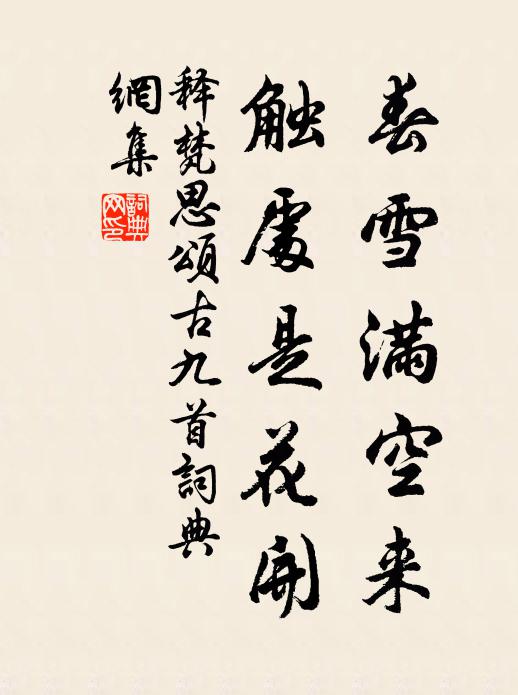 春雪满空来
触處是花開
释梵思頌古九首詞典
網集
詞典
网印